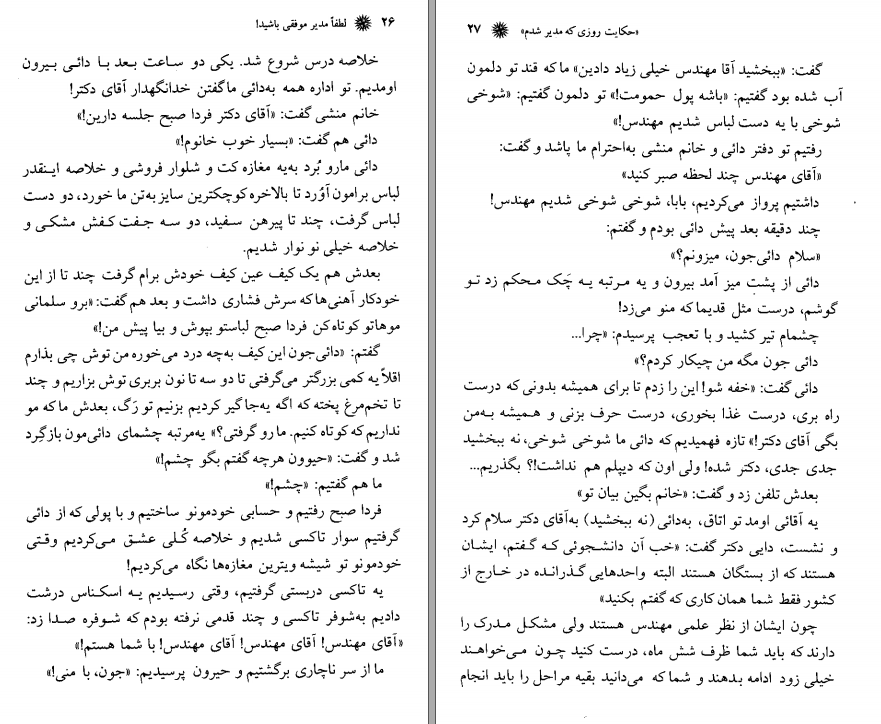 ۲۶ لطفاً مدیر موفقی باشید!
خلاصه درس شروع شد. یکی دو ساعت بعد با دائی بیرون
اومدیم. تو اداره همه به‌دائی ماگفتن خدانگهدار آقای دکتر!
خانم منشی گفت: «آقای دکتر فردا صبح جلسه دارین!»
دائی هم گفت: «بسیار خوب خانوم!»
دائی مارو بُرد به‌یه مغازه کت و شلوار فروشی و خلاصه اینقدر
لباس برامون آوُرد تا بالاخره کوچکترین سایز به‌تن ما خورد، دو دست
لباس گرفت، چند تا پیرهن سفید، دو سه جفت کفش مشکی و
خلاصه خیلی نو نوار شدیم.
بعدش هم یک کیف عین کیف خودش برام گرفت چند تا از این
خودکار آهنی‌ها که سرش فشاری داشت و بعد هم گفت: «برو سلمانی
موهاتو کوتاه کن فردا صبح لباستو بپوش و بیا پیش من!»
گفتم: «دائی‌جون این کیف به‌چه درد می‌خوره من توش چی بذارم
اقلاً یه کمی بزرگتر می‌گرفتی تا دو سه تا نون بربری توش بزاریم و چند
تا تخم‌مرغ پخته که اگه یه‌جا گیر کردیم بزنیم تو رَگ، بعدش ما که مو
نداریم که کوتاه کنیم. ما رو گرفتی؟» یه‌مرتبه چشمای دائی‌مون بازگِرد
شد و گفت: «حیوون هرچه گفتم بگو چشم!»
ما هم گفتیم: «چشم!»
فردا صبح رفتیم و حسابی خودمونو ساختیم و با پولی که از دائی
گرفتیم سوار تاکسی شدیم و خلاصه کُلی عشق می‌کردیم وقتی
خودمونو تو شیشه ویترین مغازه‌ها نگاه می‌کردیم!
یه تاکسی دربستی گرفتیم، وقتی رسیدیم یه اسکناس درشت
دادیم به‌شوفر تاکسی و چند قدمی نرفته بودم که شوفره صدا زد:
«آقای مهندس! آقای مهندس! آقای مهندس! با شما هستم!»
ما از سر ناچاری برگشتیم و حیرون پرسیدیم: «جون، با منی!»
«حکایت روزی که مدیر شدم» ۲۷
گفت: «ببخشید آقا مهندس خیلی زیاد دادین» ما که قند تو دلمون
آب شده بود گفتیم: «باشه پول حمومت!» تو دلمون گفتیم: «شوخی
شوخی با یه دست لباس شدیم مهندس!»
رفتیم تو دفتر دائی و خانم منشی به‌احترام ما پاشد و گفت:
«آقای مهندس چند لحظه صبر کنید»
داشتیم پرواز می‌کردیم، بابا، شوخی شوخی شدیم مهندس!
چند دقیقه بعد پیش دائی بودم و گفتم:
«سلام دائی‌جون، میزونم؟»
دائی از پشت میز آمد بیرون و یه مرتبه یه چَک محکم زد تو
گوشم، درست مثل قدیما که منو می‌زد!
چشمام تیر کشید و با تعجب پرسیدم: «چرا...
دائی جون مگه من چیکار کردم؟»
دائی گفت: «خفه شو! این را زدم تا برای همیشه بدونی که درست
راه بری، درست غذا بخوری، درست حرف بزنی و همیشه به‌من
بگی آقای دکتر!» تازه فهمیدیم که دائی ما شوخی شوخی، نه ببخشید
جدی جدی، دکتر شده! ولی اون که دیپلم هم نداشت!؟ بگذریم...
بعدش تلفن زد و گفت: «خانم بگین بیان تو»
یه آقائی اومد تو اتاق، به‌دائی (نه ببخشید) به‌آقای دکتر سلام کرد
و نشست، دایی دکتر گفت: «خب آن دانشجوئی که گفتم، ایشان
هستند که از بستگان هستند البته واحدهایی گذرانده در خارج از
کشور فقط شما همان کاری که گفتم بکنید»
چون ایشان از نظر علمی مهندس هستند ولی مشکل مدرک را
دارند که باید شما ظرف شش ماه، درست کنید چون می‌خواهند
خیلی زود ادامه بدهند و شما که می‌دانید بقیه مراحل را باید انجام